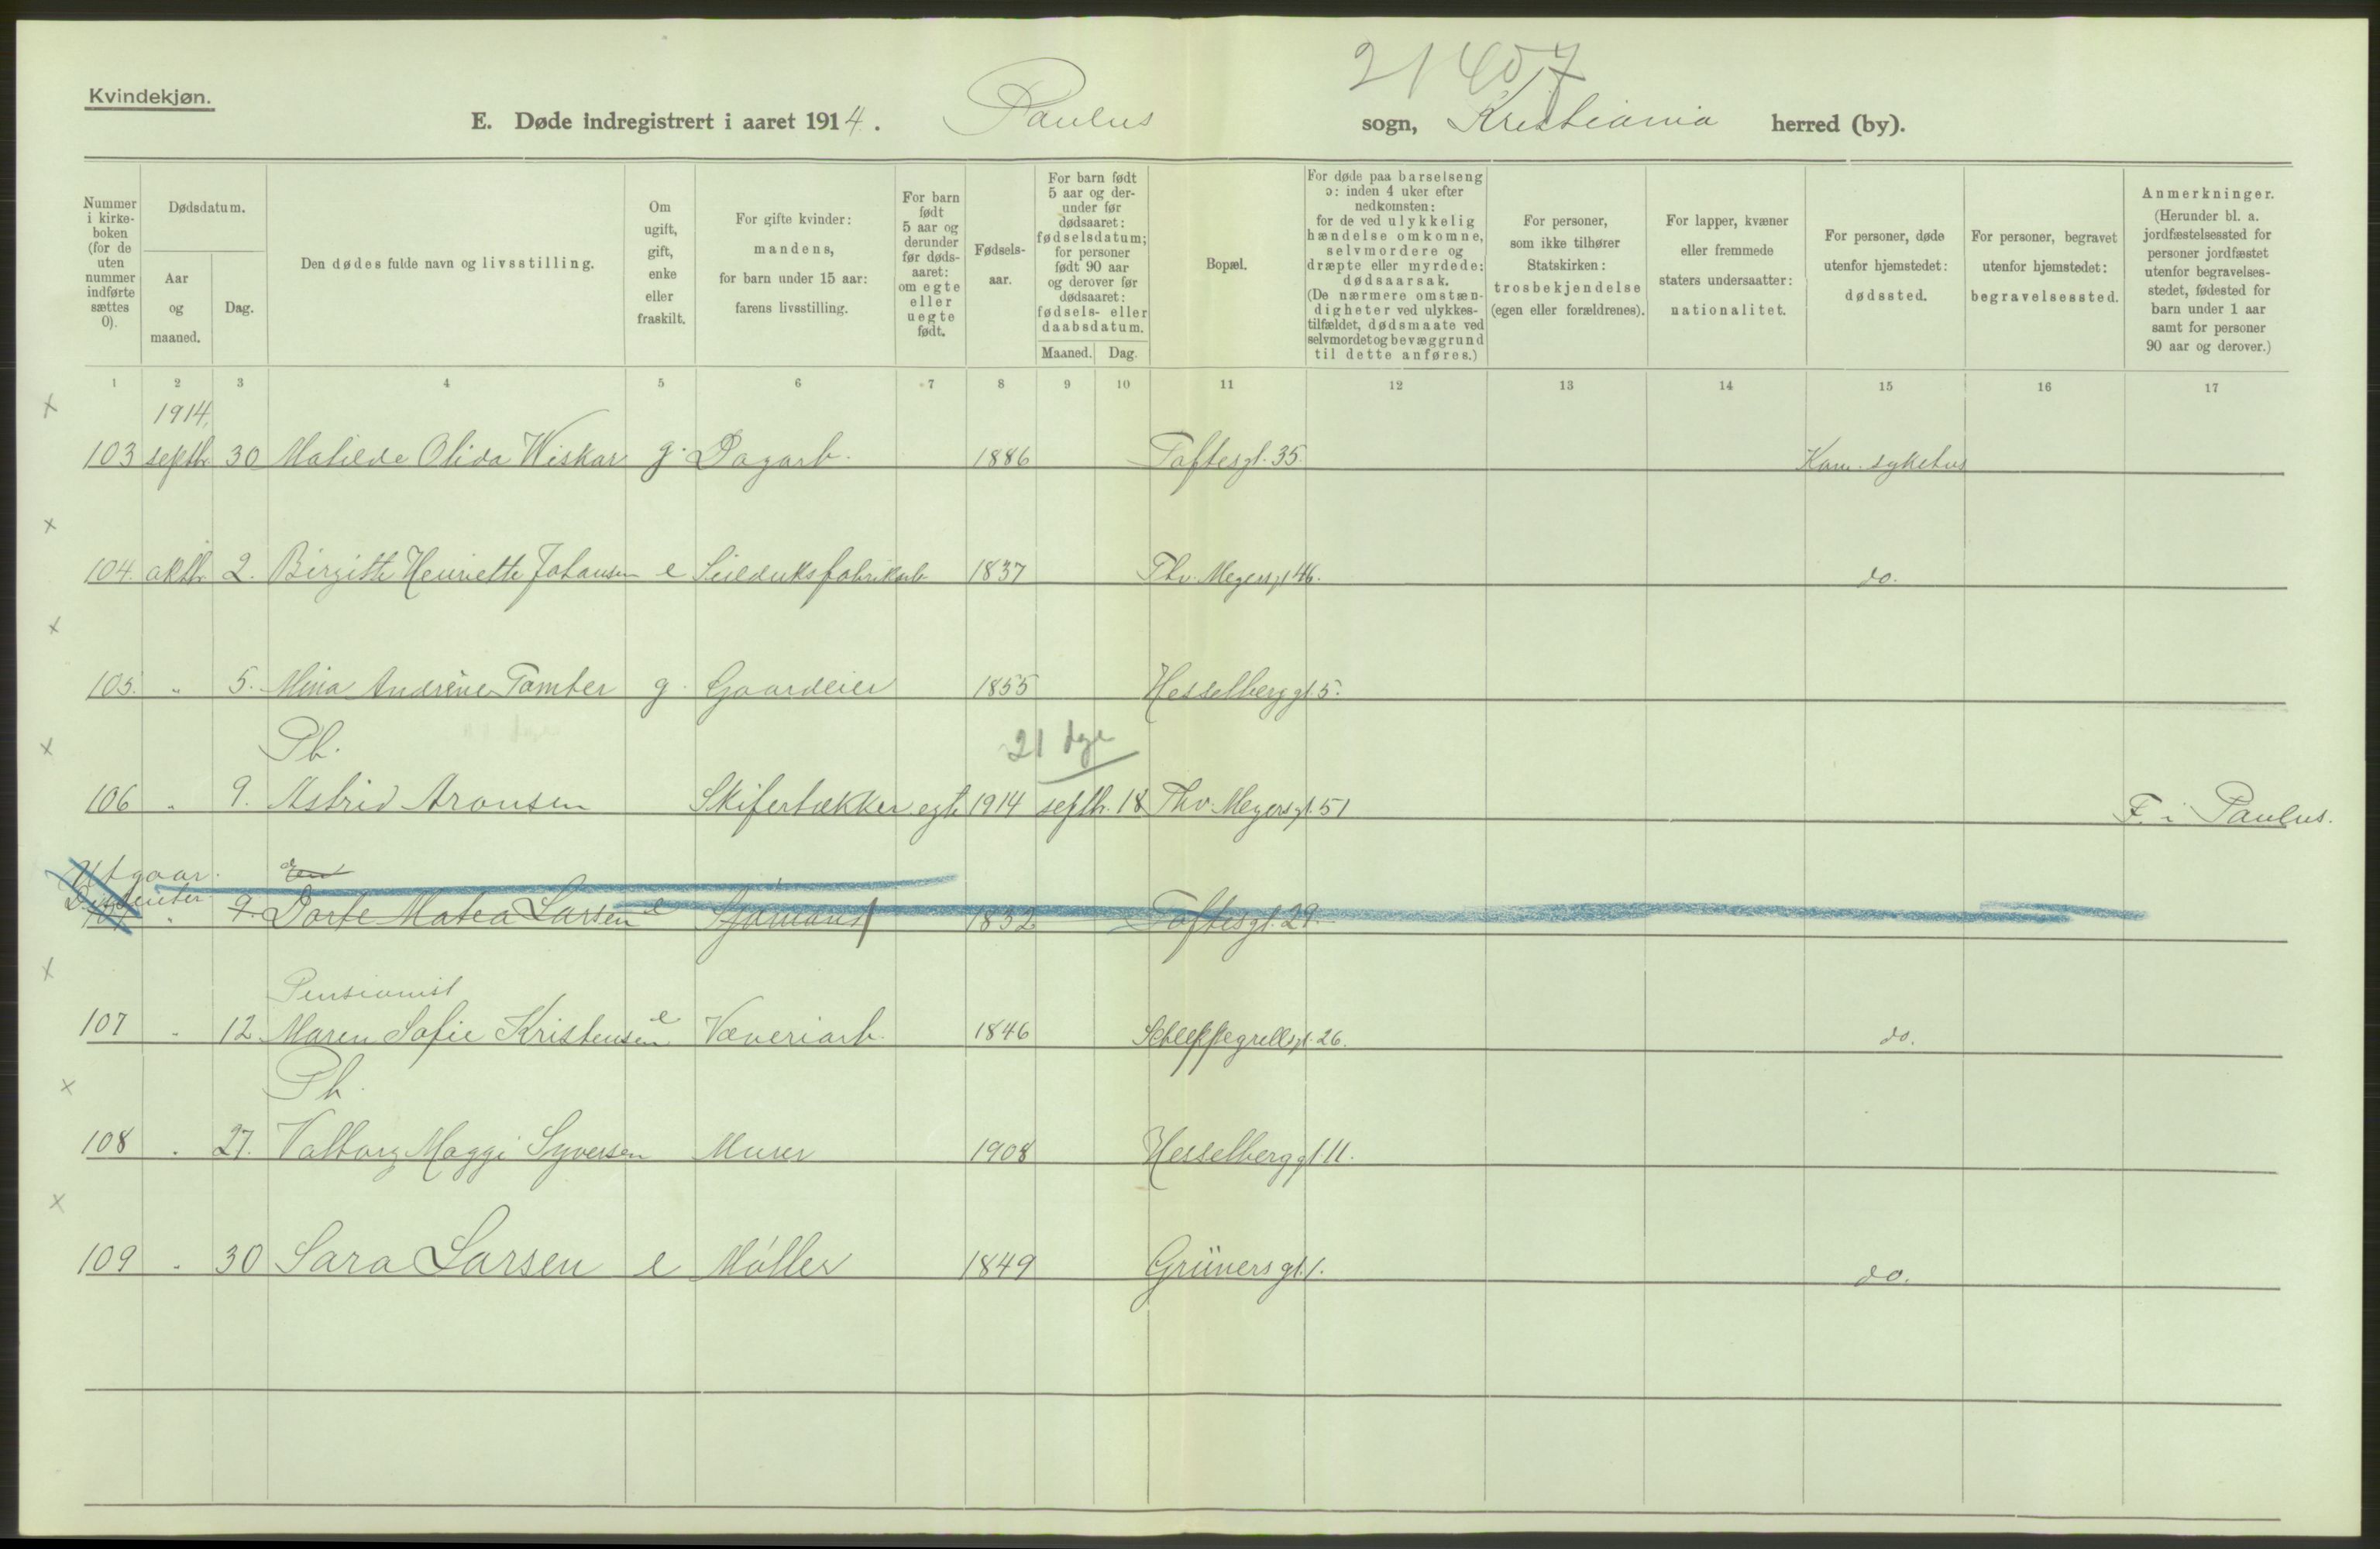 21 407
Kvindekjøn.
E. Døde indregistrert i aaret 1914. Paulus sogn, Kristiania herred (by).
Nummer i kirke-boken (for de uten nummer indførte sættes 0).
Dødsdatum.
Aar og maaned.
Dag.
Den dødes fulde navn og livsstilling.
Om ugift, gift, enke eller fraskilt.
For gifte kvinder: mandens, for barn under 15 aar: farens livsstilling.
For barn født 5 aar og derunder før døds-aaret: om egte eller uegte født.
Fødsels-aar.
For barn født 5 aar og der-under før dødsaaret: fødselsdatum; for personer født 90 aar og derover før dødsaaret: fødsels- eller daabsdatum.
Maaned. Dag.
Bopæl.
For døde paa barselseng ɔ: inden 4 uker efter nedkomsten: for de ved ulykkelig hændelse omkomne, selvmordere og dræpte eller myrdede: dødsaarsak. (De nærmere omstæn-digheter ved ulykkes-tilfældet, dødsmaate ved selvmordet og bevæggrund til dette anføres.)
For personer, som ikke tilhører Statskirken: trosbekjendelse (egen eller forældrenes).
For lapper, kvæner eller fremmede staters undersaatter: nationalitet.
For personer, døde utenfor hjemstedet: dødssted.
For personer, begravet utenfor hjemstedet: begravelsessted.
Anmerkninger. (Herunder bl. a. jordfæstelsessted for personer jordfæstet utenfor begravelses-stedet, fødested for barn under 1 aar samt for personer 90 aar og derover.)
1 2 3 4 5 6 7 8 9 10 11 12 13 14 15 16 17
x 1914,
103 septb. 30 Matilde Olida Wiskar g. Dagarb. 1886 Toftesgt. 35. Kom. sykehus
x
104. oktb. 2. Birgitte Henriette Johansen e Seilduksfabrikarb. 1837 Thv. Meyersgt 46. do.
x
105. " 5. Mina Andrine Tamber g. Gaardeier 1855 Hesselberggt. 5.
x Pb. 21 dge
106 " 9. Astrid Aronsen Skifertækker egte 1914 septb. 18 Thv. Meyersgt. 51 F. i Paulus.
Utgaar. En
Dissenter.
107 " 9. Dorte Matea Larsen e Sjømand 1832 Toftesgt. 29.
x Pensionist
107 " 12 Maren Sofie Kristensen e Væveriarb. 1846 Schleppegrellsgt. 26. do.
x Pb.
108 " 27. Valborg Maggi Syversen Murer 1908 Hesselberggt. 11.
x
109 " 30 Sara Larsen e Møller 1849 Grünersgt. 1. do.